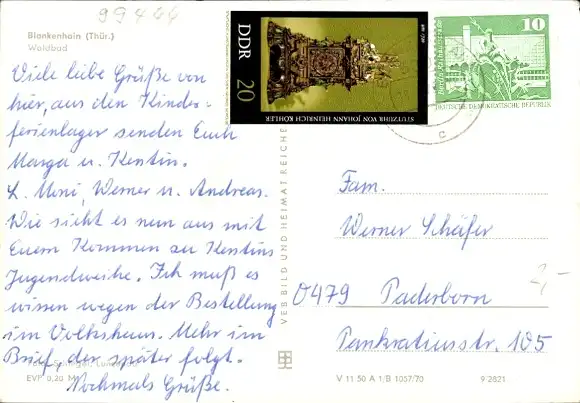 99444
Blankenhain (Thür.)
Waldbad
Viele liebe Grüße von
hier, aus den Kinder-
ferienlager senden Euch
Marga u. Kerstin.
L. Moni, Werner u. Andreas.
Wie sieht es nun aus mit
Euerm Kommen zu Kerstins
Jugendweihe. Ich muß es
wissen wegen der Bestellung
im Volkshaus. Mehr im
Brief, der später folgt.
Nochmals Grüße.
EVP 0,20 M
VEB BILD UND HEIMAT REICHENBACH
DDR 20
STUTZUHR VON JOHANN HEINRICH KÖHLER
10
DEUTSCHE DEMOKRATISCHE REPUBLIK
c
Fam.
Werner Schäfer
2,-
0479 Paderborn
Pankratiusstr. 105
V 11 50 A 1/B 1057/70
9/2621